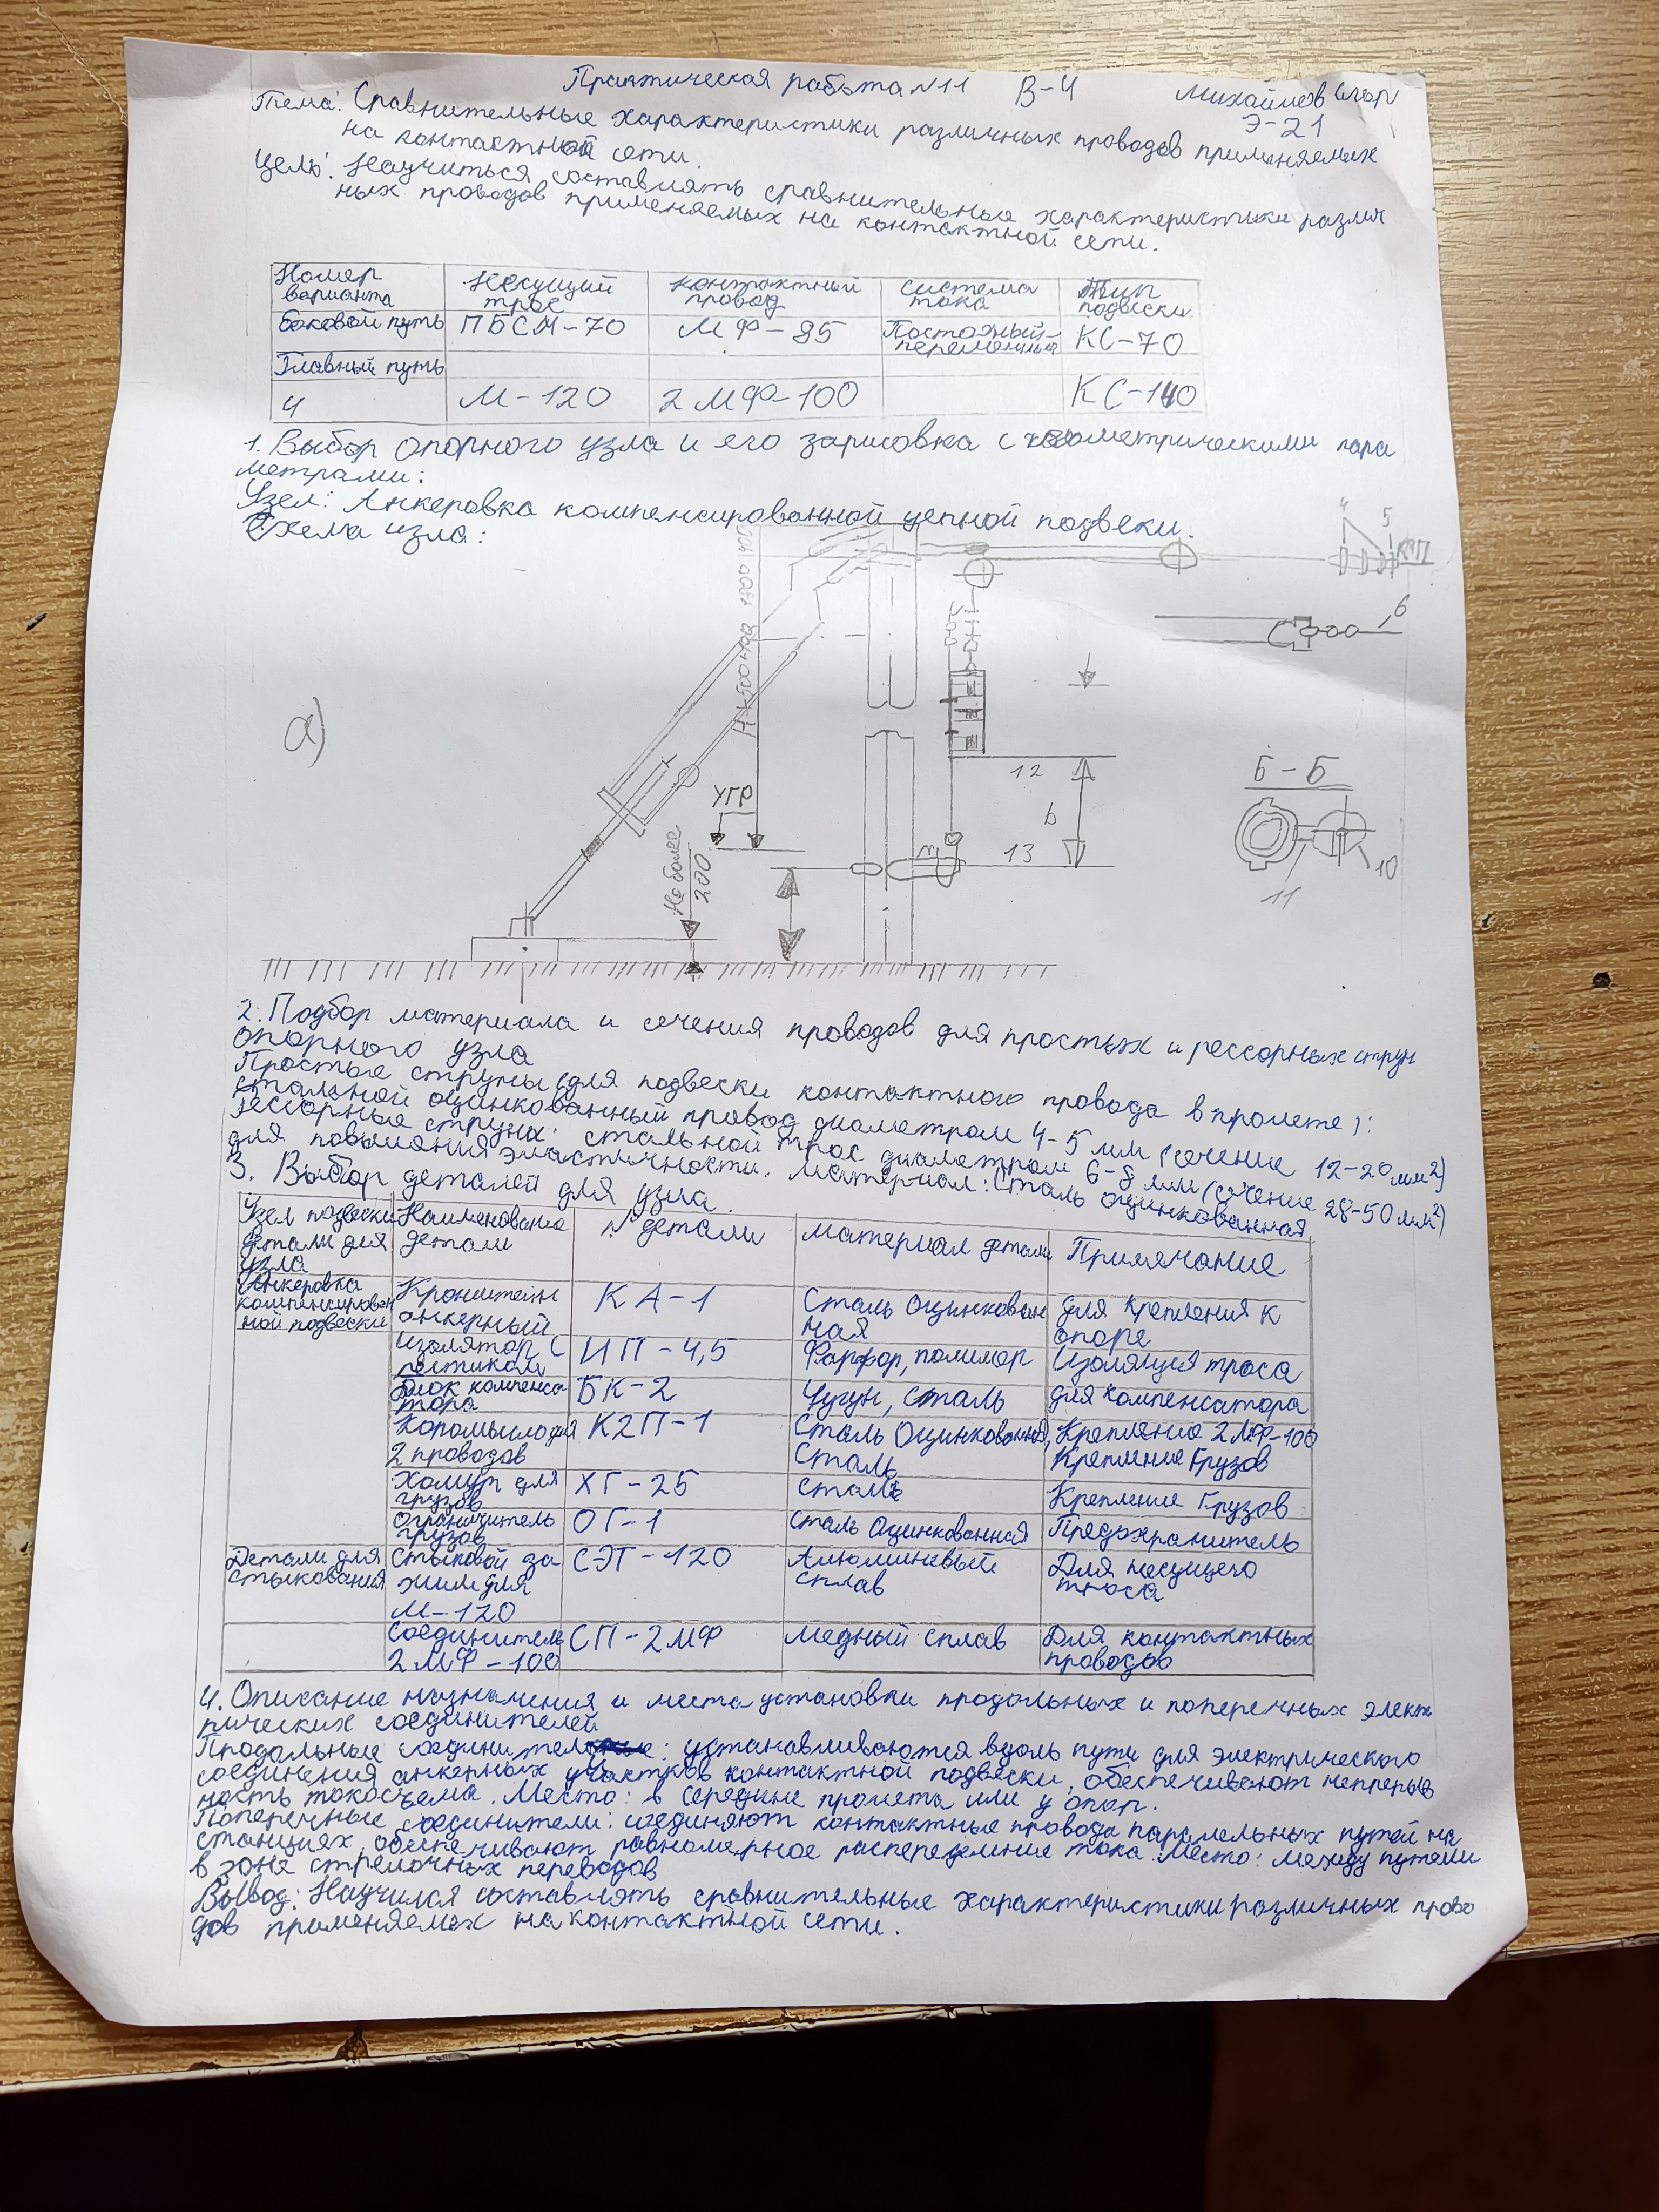 Практическая работа №11 В-4 Михайлов Егор
Э-21
Тема: Сравнительные характеристики различных проводов применяемых
на контактной сети.
Цель: Научиться составлять сравнительные характеристики различ
ных проводов применяемых на контактной сети.
Номер варианта Несущий трос контрактный провод система тока Тип подвески
боковой путь ПБСМ-70 МФ-85 Постоянный-переменный КС-70
Главный путь
4 М-120 2МФ-100 КС-140
1. Выбор опорного узла и его зарисовка с геометрическими пара
метрами:
Узел: Анкеровка компенсированной цепной подвеки.
Схема узла:
4 5
КП
6
а)
УГР
Не более
200
12
b
m
13
Б-Б
10
11
2. Подбор материала и сечения проводов для простых и рессорных струн
опорного узла
Простые струны (для подвески контактного провода в пролете):
стальной оцинкованный провод диаметром 4-5 мм (сечение 12-20 мм²)
Рессорные струны: стальной трос диаметром 6-8 мм (сечение 28-50 мм²)
для повышения эластичности. Материал: Сталь оцинкованная
3. Выбор деталей для узла.
Узел подвески детали для узла Наименование детали № детали материал детали Примечание
Анкеровка компенсирован ной подвески Кронштейн анкерный КА-1 Сталь Оцинкован ная для крепления к опоре
Изолятор с пестиком ИП-4,5 Фарфор, полимер Изоляция троса
Блок компенса тора БК-2 Чугун, сталь для компенсатора
Коромысло для 2 проводов К2П-1 Сталь Оцинкованная, Сталь Крепление 2МФ-100 Крепление Грузов
Хомут для грузов ХГ-25 сталь Крепление Грузов
Ограничитель грузов ОГ-1 Сталь Оцинкованная Предохранитель
Детали для стыкования Стыковой за жим для М-120 СЭТ-120 Алюминевый сплав Для несущего троса
Соединитель 2МФ-100 СП-2МФ Медный сплав Для контактных проводов
4. Описание назначения и места установки продольных и поперечных элект
рических соединителей
Продольные соединители: устанавливаются вдоль пути для электрического
соединения анкерных участков контактной подвески, обеспечивают непрерыв
ность токосъема. Место: в середине пролета или у опор.
Поперечные соединители: соединяют контактные провода паралельных путей на
станциях, обеспечивают равномерное распределение тока. Место: между путями
в зоне стрелочных переводов
Вывод: Научился составлять сравнительные характеристики различных прово
дов применяемых на контактной сети.